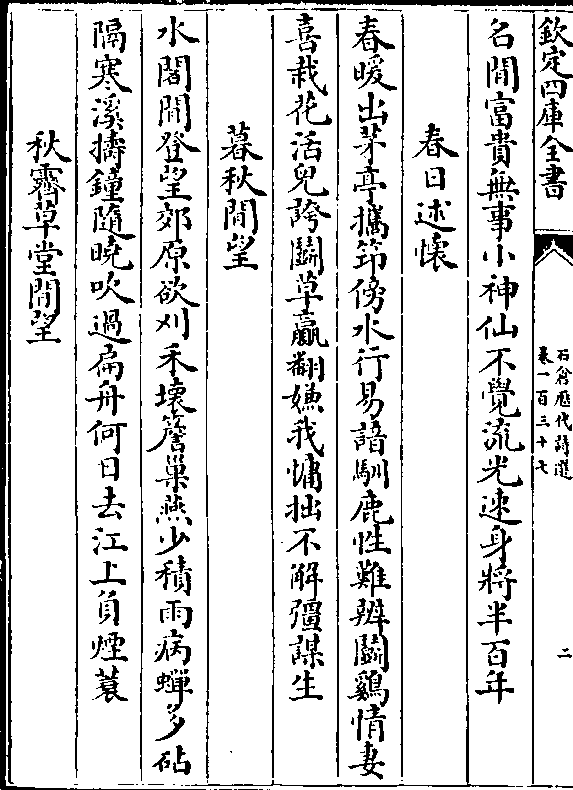 欽定四庫全書
石倉歷代詩選
卷一百三十七
二
名閒富貴無事小神仙不覺流光速身將半百年
春日述懷
春暖出茅亭攜筇傍水行易諳馴鹿性難辨鬬鷄情妻
喜栽花活兒誇鬬草贏翻嫌我慵拙不解彊謀生
暮秋閒望
水閣閒登望郊原欲刈禾壞簷巢燕少積雨病蟬多砧
隔寒溪擣鐘隨晚吹過扁舟何日去江上負煙蓑
秋霽草堂閒望